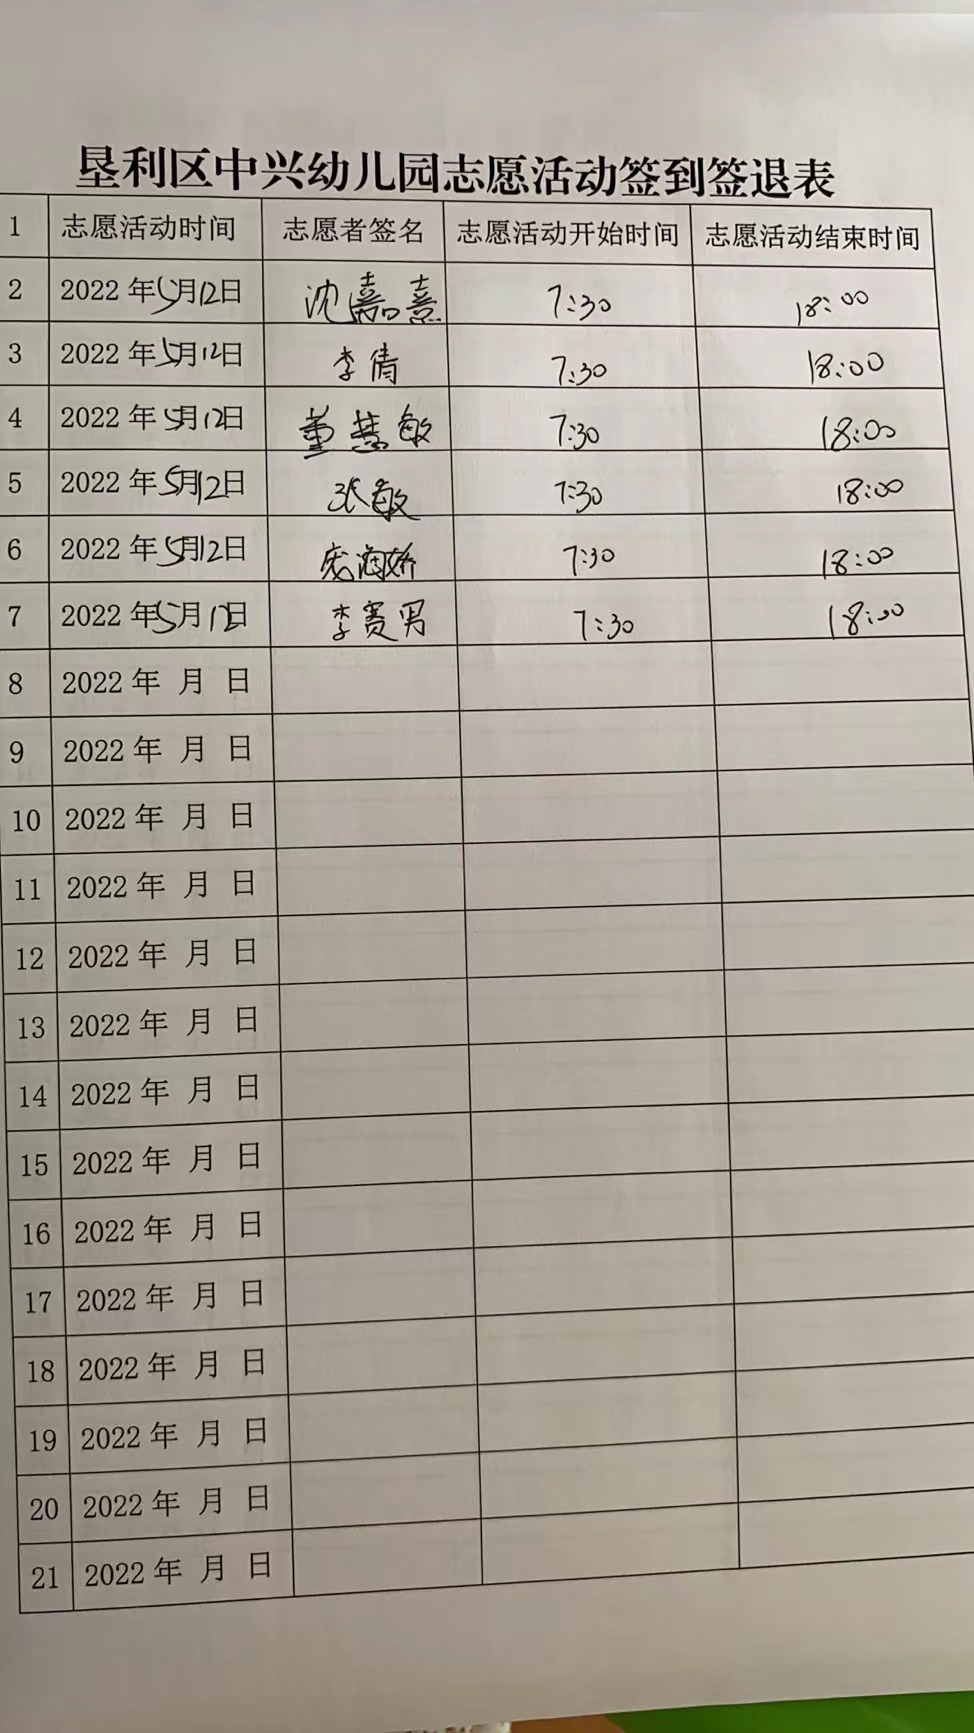 垦利区中兴幼儿园志愿活动签到签退表
1 志愿活动时间 志愿者签名 志愿活动开始时间 志愿活动结束时间
2 2022 年5月12日 沈嘉熹 7:30 18:00
3 2022 年5月12日 李倩 7:30 18:00
4 2022 年5月12日 董慧敏 7:30 18:00
5 2022 年5月12日 张敏 7:30 18:00
6 2022 年5月12日 海娇 7:30 18:00
7 2022 年5月12日 李赛男 7:30 18:00
8 2022 年 月 日
9 2022 年 月 日
10 2022 年 月 日
11 2022 年 月 日
12 2022 年 月 日
13 2022 年 月 日
14 2022 年 月 日
15 2022 年 月 日
16 2022 年 月 日
17 2022 年 月 日
18 2022 年 月 日
19 2022 年 月 日
20 2022 年 月 日
21 2022 年 月 日